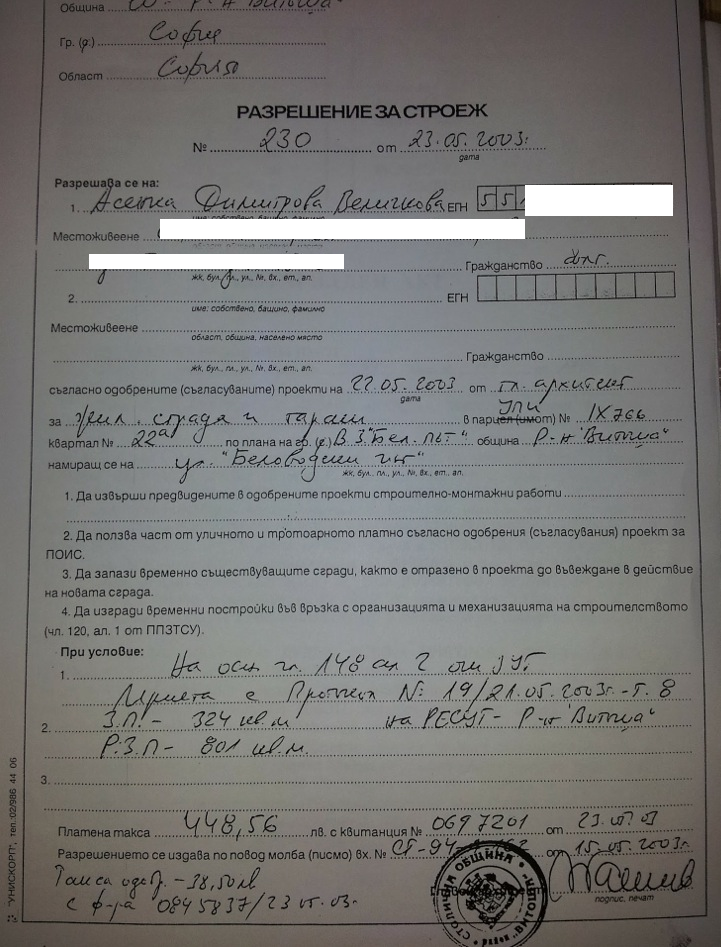 Община СО - Р-н "Витоша"
Гр. (с.) София
Област София
РАЗРЕШЕНИЕ ЗА СТРОЕЖ
№ 230 от 23.05.2003г.
дата
Разрешава се на:
1. Асенка Димитрова Величкова ЕГН 5 5
име: собствено, бащино, фамилно
Местоживеене
жк, бул., пл., ул., №, вх., ет., ап. Гражданство бълг.
2. ЕГН
име: собствено, бащино, фамилно
Местоживеене
област, община, населено място
Гражданство
жк, бул., пл., ул., №, вх., ет., ап.
съгласно одобрените (съгласуваните) проекти на 22.05.2003 от гл. архитект
дата
за жил. сграда и гаражи в УПИ парцел (имот) № IX766
квартал № 22а по плана на гр. (с.) В.З."Бел. път" община Р-н "Витоша"
намиращ се на ул. "Беловодски път"
жк, бул., пл., ул., №, вх., ет., ап.
1. Да извърши предвидените в одобрените проекти строително-монтажни работи
2. Да ползва част от уличното и тротоарното платно съгласно одобрения (съгласувания) проект за
ПОИС.
3. Да запази временно съществуващите сгради, както е отразено в проекта до въвеждане в действие
на новата сграда.
4. Да изгради временни постройки във връзка с организацията и механизацията на строителството
(чл. 120, ал. 1 от ППЗТСУ).
При условие:
1. На осн. чл. 148 ал 2 от ЗУТ
Приета с Протокол №: 19/21.05.2003г. - т. 8
2. З.П. - 324 кв.м. на РЕСУТ - Р-н "Витоша"
Р.З.П - 801 кв.м.
3.
Платена такса 448,56 лв. с квитанция № 0697201 от 23.05.03
Разрешението се издава по повод молба (писмо) вх. № СГ-94- от 15.05.2003г.
Такса одобр. - 38,50лв
с ф-ра 0845837/23.05.03г.
подпис, печат
СТОЛИЧНА ОБЩИНА район "ВИТОША"
"УНИСКОРП", тел.:02/986 44 06